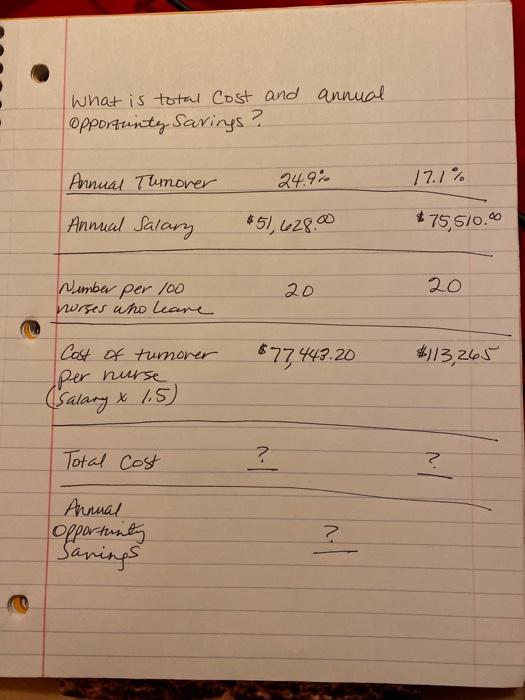 What is total Cost and annual
Opportunity Savings?
Annual Turnover 24.9% 17.1%
Annual Salary $51,628.00 $75,510.00
Number per 100 20 20
nurses who leave
Cost of turnover $77,443.20 $113,265
per nurse
(Salary x 1.5)
Total Cost ? ?
Annual
Opportunity ?
Savings